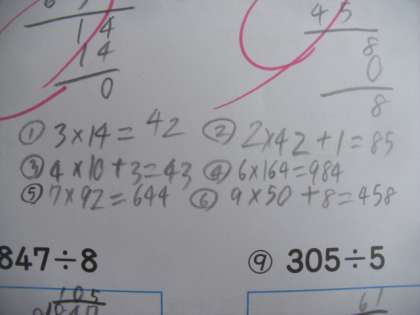 14
14
0
45
8
0
8
① 3×14=42 ② 2×42+1=85
③ 4×10+3=43 ④ 6×164=984
⑤ 7×92=644 ⑥ 9×50+8=458
847÷8 ⑨ 305÷5
105
61